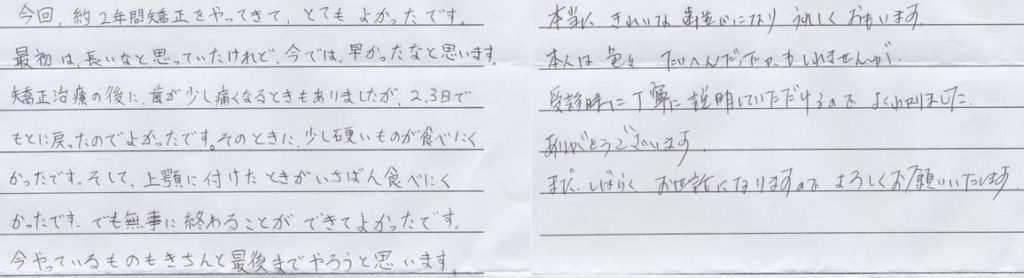 今回、約2年間矯正をやってきて、とてもよかったです。
最初は、長いなと思っていたけれど、今では、早かったなと思います。
矯正治療の後に、歯が少し痛くなるときもありましたが、2、3日で
もとに戻ったのでよかったです。そのときに、少し硬いものが食べにく
かったです。そして、上顎に付けたときがいちばん食べにく
かったです。でも無事に終わることができてよかったです。
今やっているものもきちんと最後までやろうと思います。
本当に きれいな歯並びになり うれしく おもいます。
本人は 色々 たいへんだったかもしれませんが、
受診時に丁寧に説明していただけるので よくわかりました。
ありがとうございます。
まだ、しばらく お世話になりますので よろしくお願いいたします。